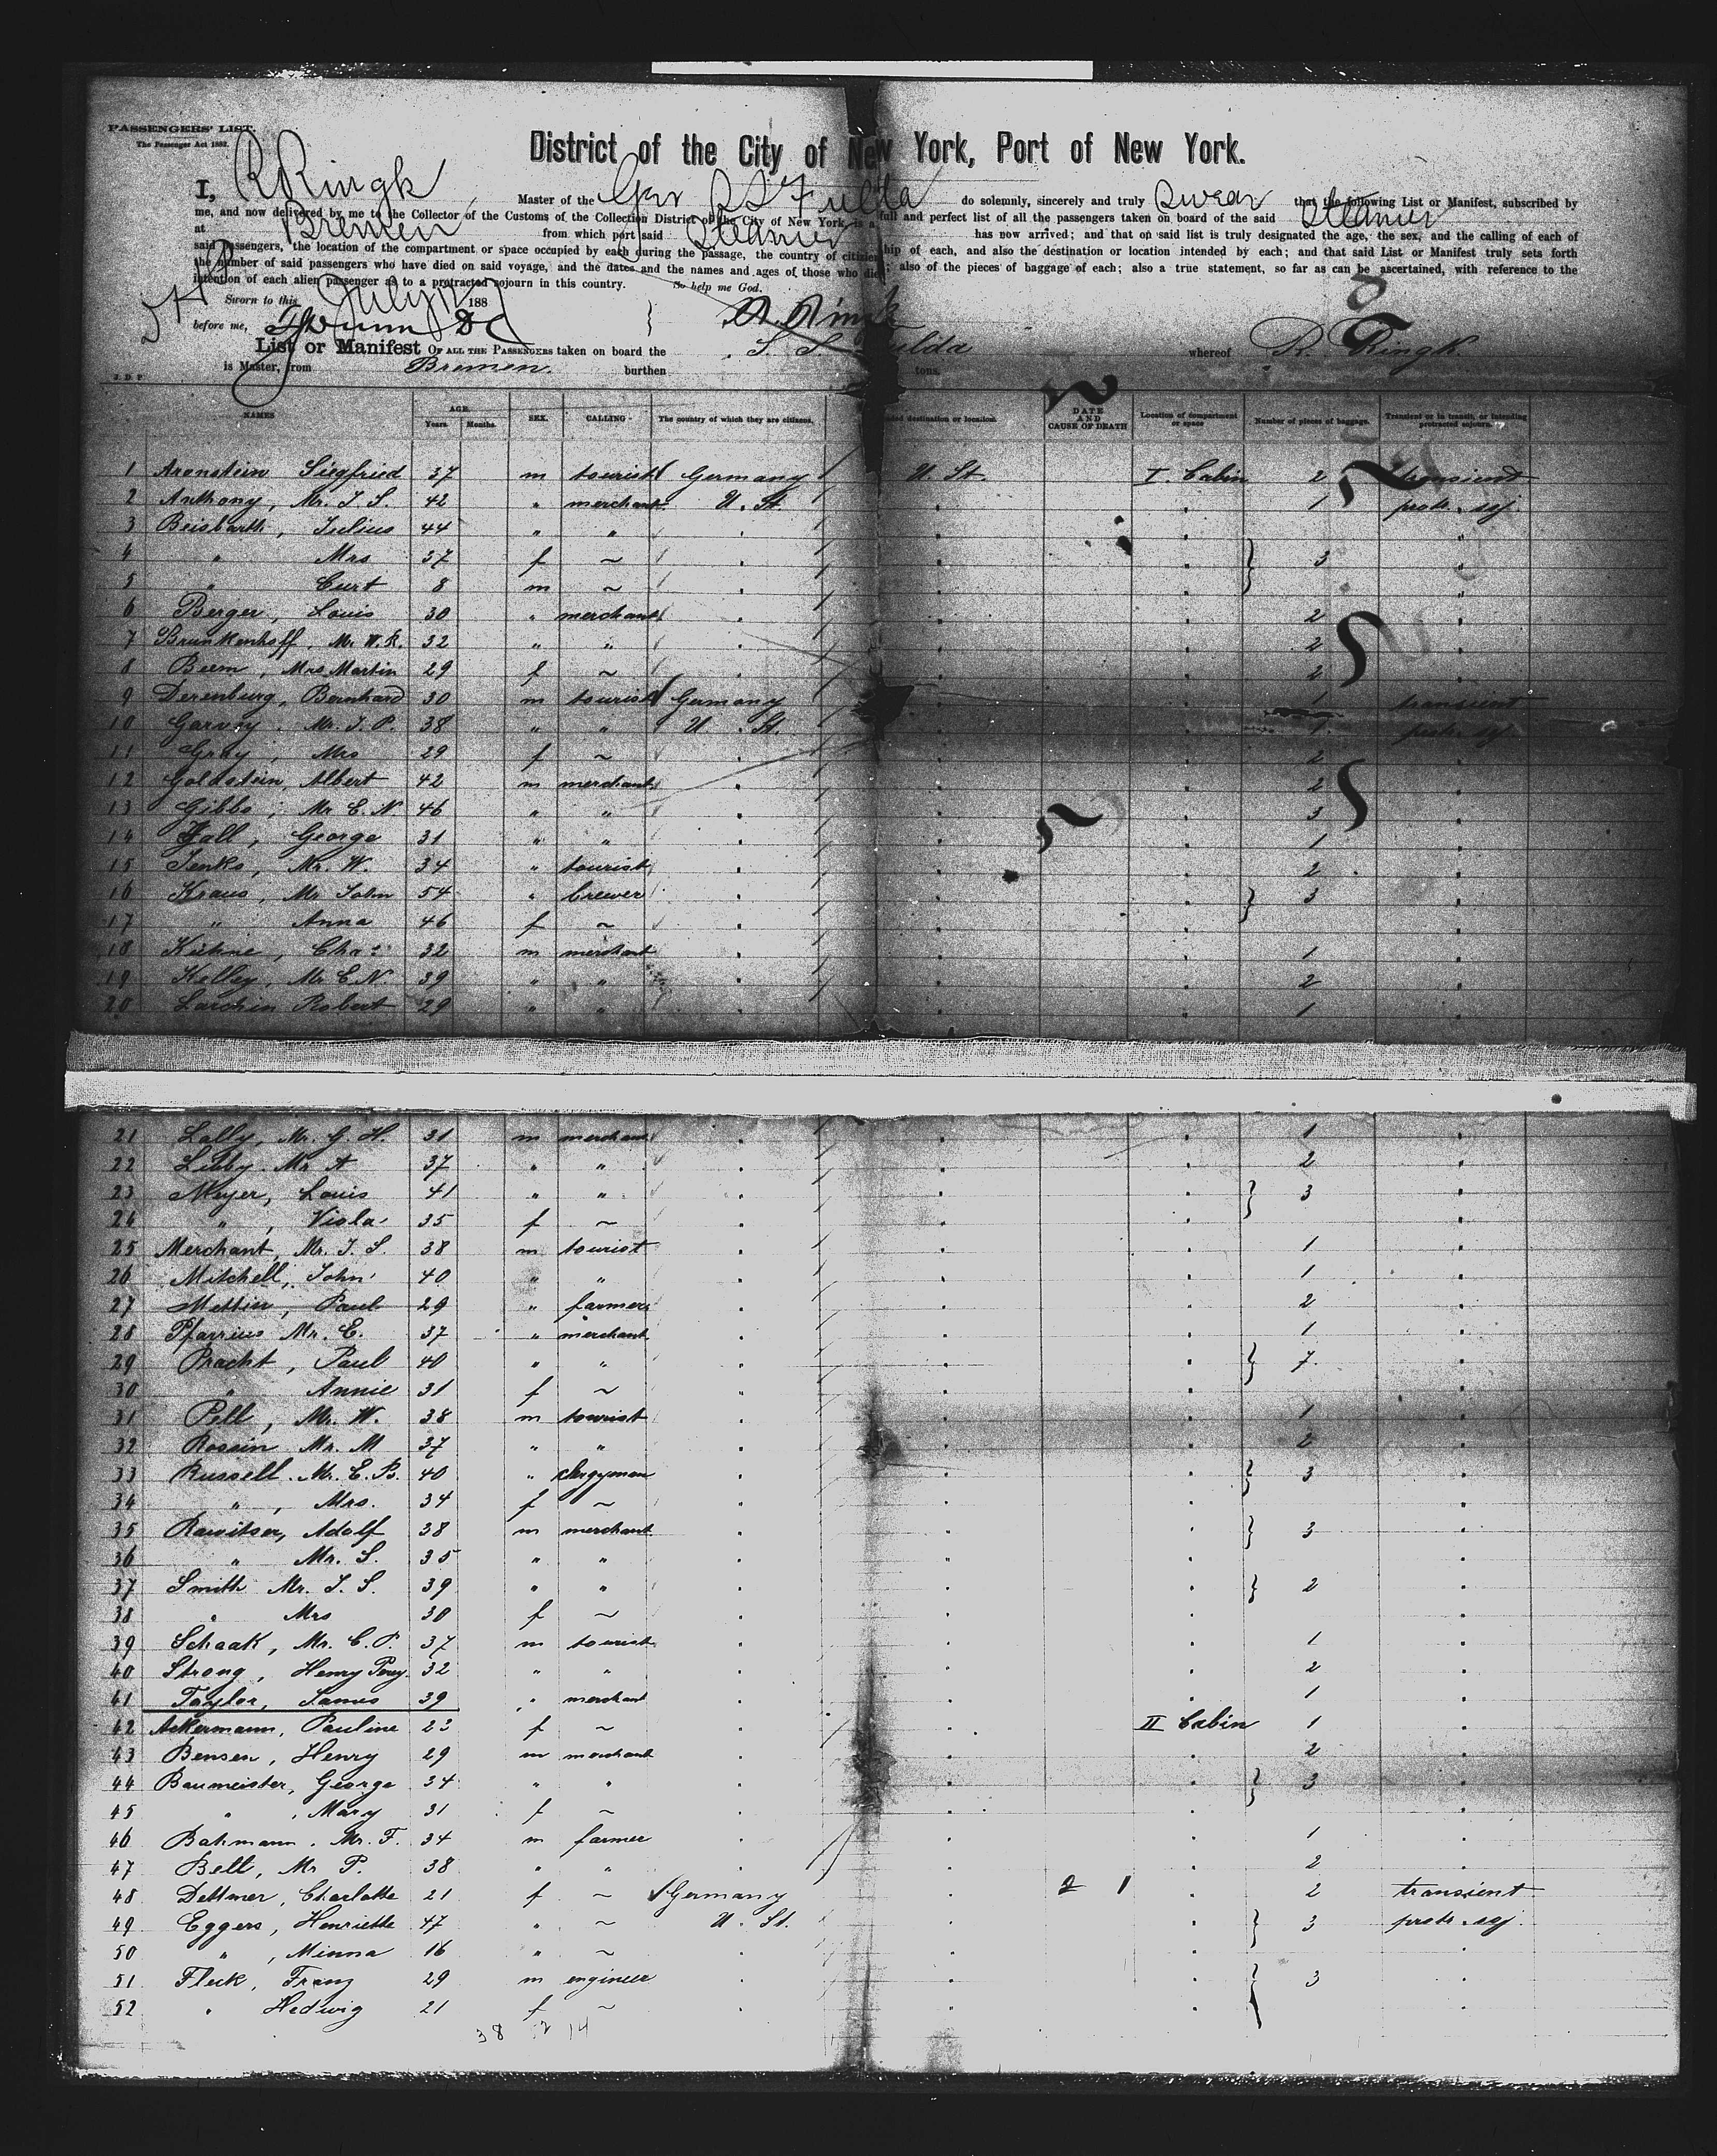 PASSENGERS' LIST.
The Passenger Act 1882.
District of the City of New York, Port of New York.
I, R Ringk Master of the Ger SS Fulda do solemnly, sincerely and truly Swear that the following List or Manifest, subscribed by
me, and now delivered by me to the Collector of the Customs of the Collection District of the City of New York is a full and perfect list of all the passengers taken on board of the said Steamer
at Bremen from which port said Steamer has now arrived; and that on said list is truly designated the age, the sex, and the calling of each of
said passengers, the location of the compartment or space occupied by each during the passage, the country of citizenship of each, and also the destination or location intended by each; and that said List or Manifest truly sets forth
the number of said passengers who have died on said voyage, and the dates and the names and ages of those who died; also of the pieces of baggage of each; also a true statement, so far as can be ascertained, with reference to the
intention of each alien passenger as to a protracted sojourn in this country. So help me God.
Sworn to this July 188
before me, R Ringk
List or Manifest OF ALL THE PASSENGERS taken on board the S. S. Fulda whereof R. Ringk.
is Master, from Bremen. burthen tons.
J. D. P.
NAMES AGE Years. Months. SEX. CALLING The country of which they are citizens. ded destination or location. DATE AND CAUSE OF DEATH Location of compartment or space Number of pieces of baggage. Transient or in transit, or intending protracted sojourn.
1 Aronstein Siegfried 37 m tourist Germany U. St. I. Cabin 2 transient
2 Anthony, Mr. J. S. 42 " merchant U. St. 1 protr. soj.
3 Beisbarth, Julius 44 " "
4 " Mrs 37 f ~ } 3
5 " Curt 8 m ~
6 Berger, Louis 30 " merchant 2
7 Brunkenhoff, Mr. W. R. 32 " " 2
8 Beem, Mrs Martin 29 f ~ 2
9 Derenburg, Bernhard 30 m tourist Germany 1 transient
10 Garvey, Mr. J. P. 38 " " U. St. 1 protr. soj.
11 Gray, Mrs 29 f ~ 2
12 Goldstein, Albert 42 m merchant 2
13 Gibbs, Mr C. N. 46 " " 3
14 Hall, George 31 " " 1
15 Jenks, Mr. W. 34 " tourist 2
16 Kraus, Mr John 54 " brewer } 3
17 " Anna 46 f ~
18 Kühne, Chas: 32 m merchant 1
19 Kelley, Mr C. N. 39 " " 2
20 Robert 29 " " 1
21 Lally, Mr. G. H. 31 m merchant 1
22 Libby Mr A 37 " " 2
23 Meyer, Louis 41 " " } 3
24 ", Viola 35 f ~
25 Merchant, Mr. J. S. 38 m tourist 1
26 Mitchell, John 40 " " 1
27 Mettin, Paul 29 " farmer 2
28 Pfarrius Mr. E. 37 " merchant 1
29 Pracht, Paul 40 " " } 7.
30 " Annie 31 f ~
31 Pell, Mr. W. 38 m tourist 1
32 Rossin Mr. M 37 " " 2
33 Russell. Mr. E. B. 40 " clergyman } 3
34 ", Mrs. 34 f ~
35 Rawitser, Adolf 38 m merchant } 3
36 " Mr. S. 35 " "
37 Smith Mr. J. S. 39 " " } 2
38 " Mrs 30 f ~
39 Schaak, Mr. C. P. 37 m tourist 1
40 Strong, Henry Percy. 32 " " 2
41 Taylor, James 39 " merchant 1
42 Ackermann, Pauline 23 f ~ II Cabin 1
43 Bensen, Henry 29 m merchant 2
44 Baumeister, George 34 " " } 3
45 ", Mary 31 f ~
46 Bahmann, Mr. F. 34 m farmer 1
47 Bell, Mr P. 38 " " 2
48 Dettmer, Charlotte 21 f ~ Germany 2 1 2 transient
49 Eggers, Henriette 47 " ~ U. St. } 3 protr. soj.
50 ", Minna 16 " ~
51 Fleck, Franz 29 m engineer } 3
52 " Hedwig 21 f ~
38 2 14